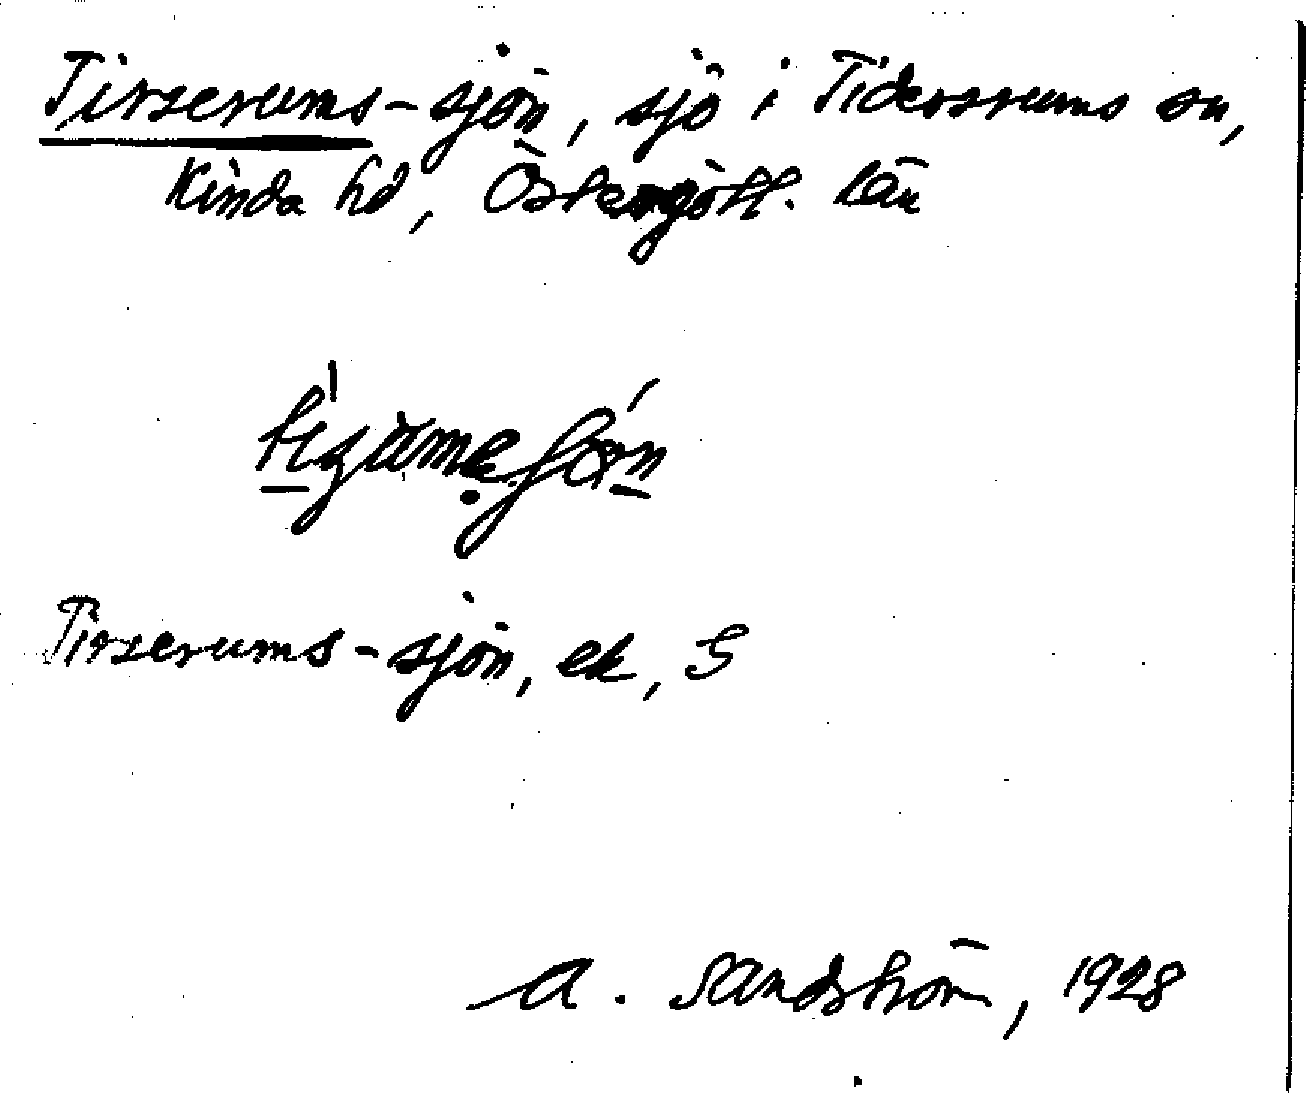 Tirserums-sjön, sjö i Tidersrums sn,
Kinda hd, Östergötl. län
Tirserums-sjön, ek, S
A. Sandström, 1928